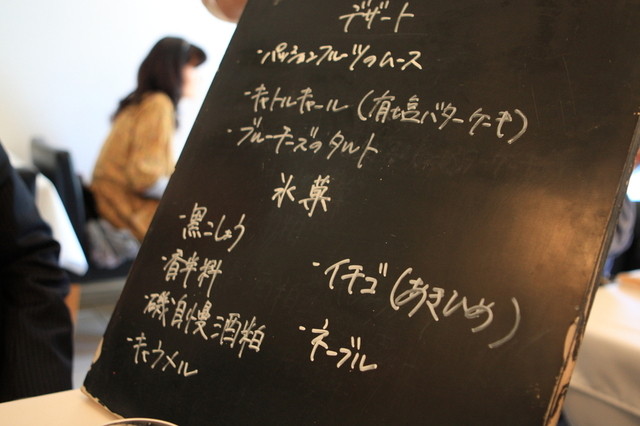 デザート
・パッションフルーツのムース
・キャトルキャール(有塩バターケーキ)
・ブルーチーズのタルト
氷菓
・黒こしょう
・香辛料
・磯自慢酒粕
・キャラメル
・イチゴ(あきひめ)
・ネーブル